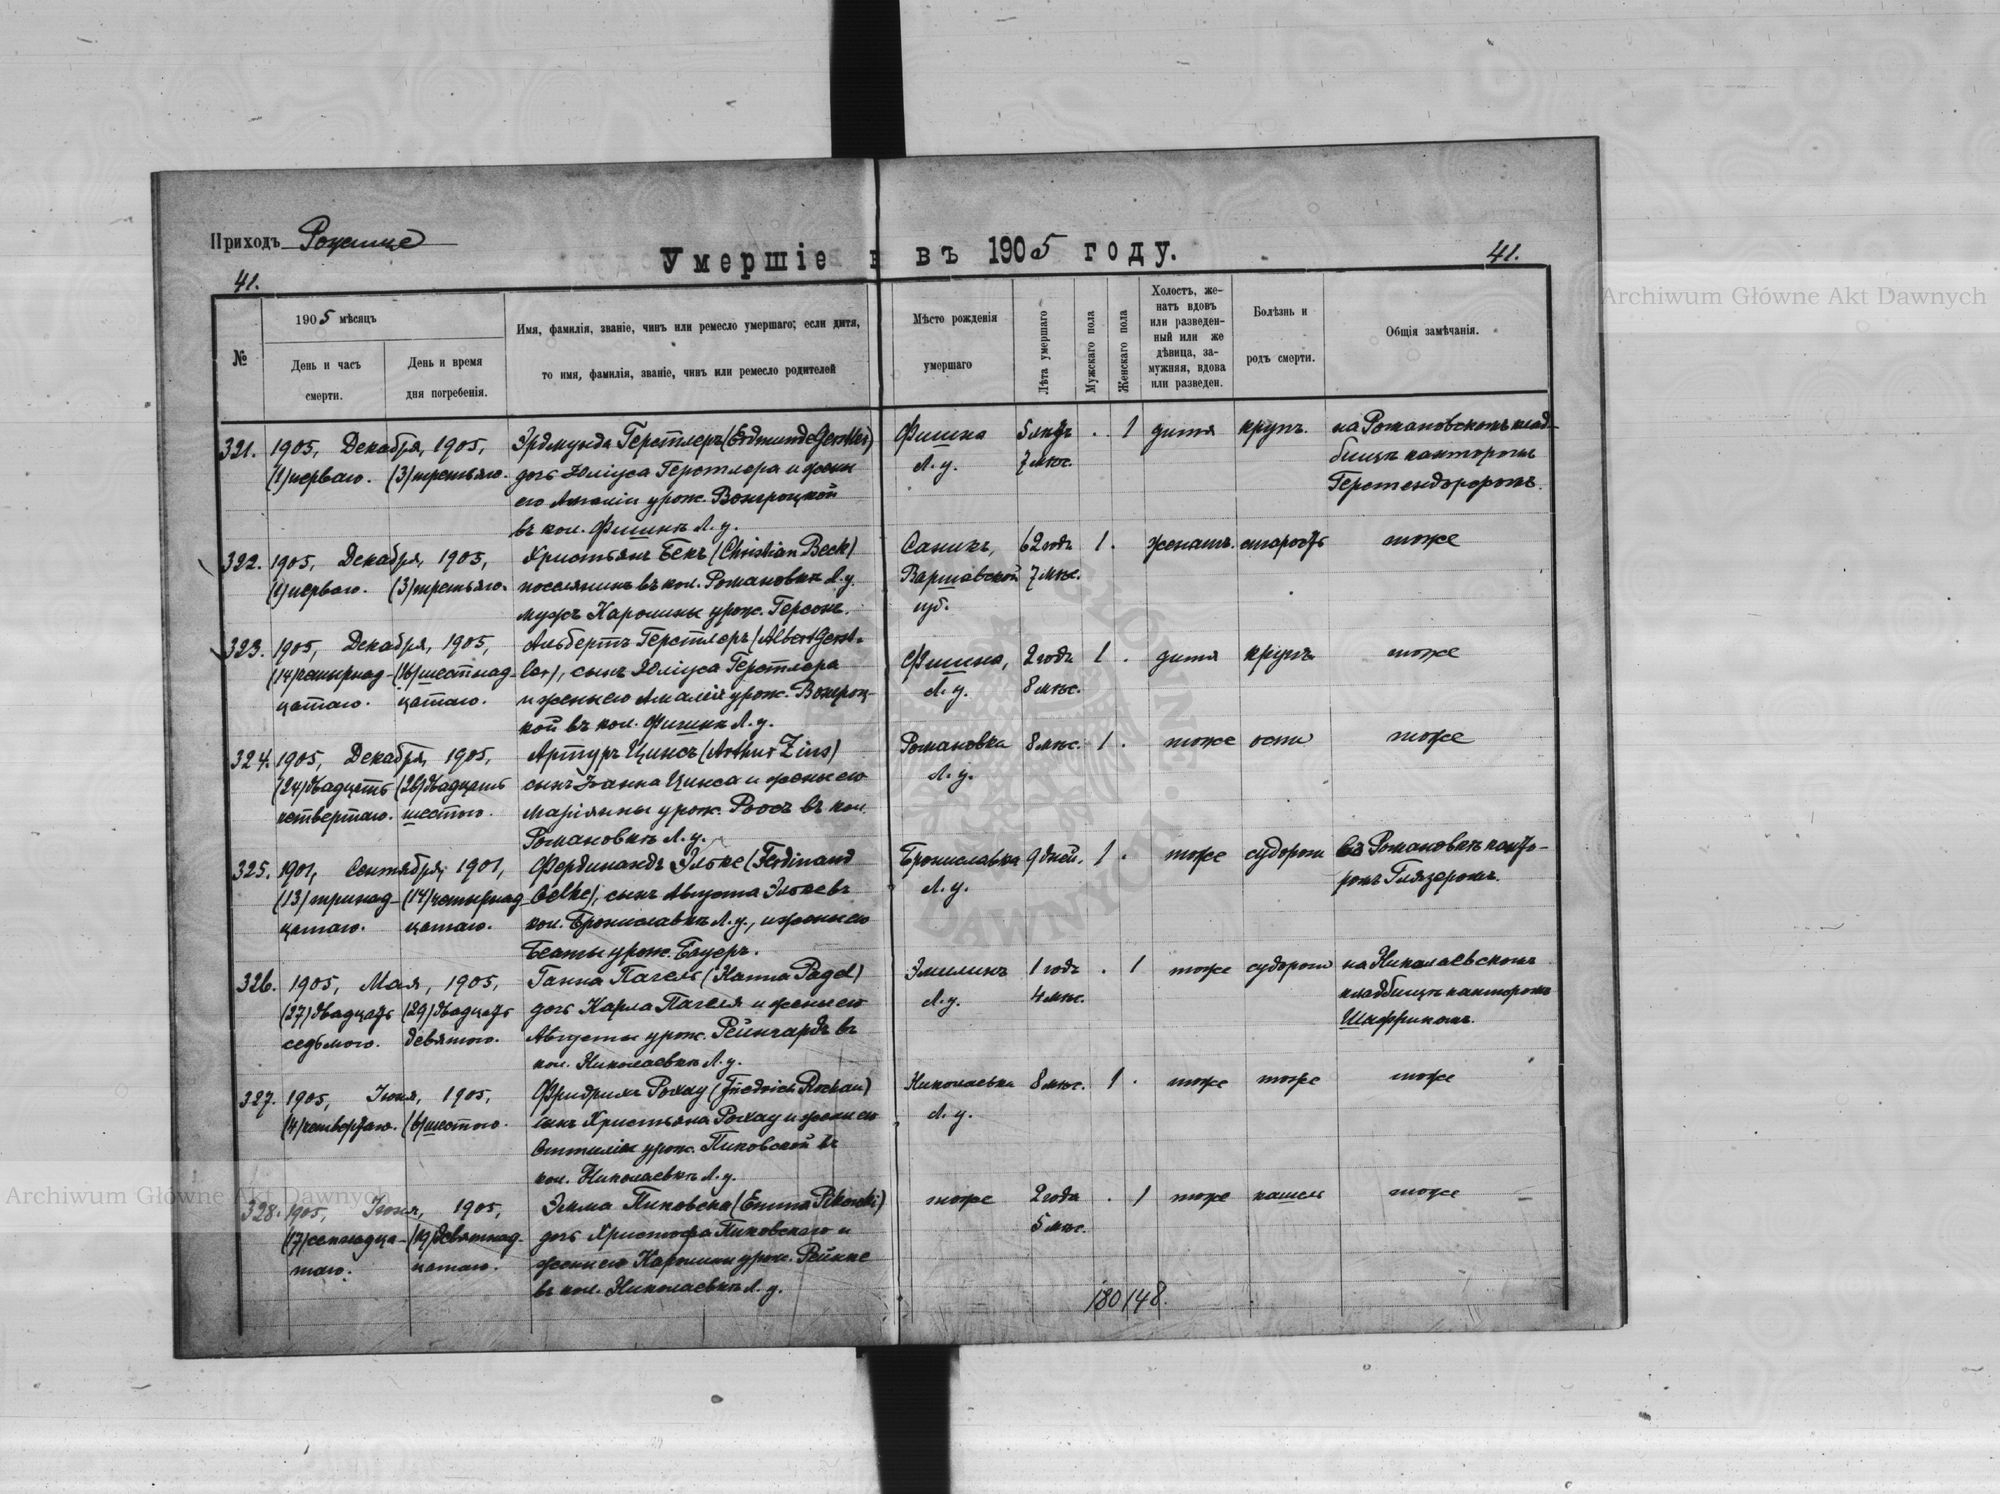 Приходъ Рожище
Умершіе въ 1905 году.
41.
41.
№
1905 мѣсяцъ
День и часъ
смерти.
День и время
дня погребенія.
Имя, фамилія, званіе, чинъ или ремесло умершаго; если дитя,
то имя, фамилія, званіе, чинъ или ремесло родителей
Мѣсто рожденія
умершаго
Лѣта умершаго
Мужскаго пола
Женскаго пола
Холостъ, же-
натъ вдовъ
или разведен-
ный или же
дѣвица, за-
мужняя, вдова
или разведен.
Болѣзнь и
родъ смерти.
Общія замѣчанія.
321. 1905, Декабря, 1905, Эрдмунда Герстлеръ (Erdmunde Gerstler) Фишка 5 лѣтъ . 1 дитя крупъ. на Романовскомъ клад-
(1) перваго. (3) третьяго. дочь Юліуса Герстлера и жены Л. у. 7 мѣс. бищѣ канторомъ
его Амаліи урож. Вонгроцкой Герстендорфомъ.
въ кол. Фишкѣ Л. у.
322. 1905, Декабря, 1905, Христьянъ Бекъ (Christian Beck) Саникъ, 62 года 1 . женатъ. старость тоже
(1) перваго. (3) третьяго. поселянинъ въ кол. Романовкѣ Л. у. Варшавской 7 мѣс.
мужъ Каролины урож. Герсонъ. губ.
323. 1905, Декабря, 1905, Альбертъ Герстлеръ (Albert Gerst-
(14) четырнад- (16) шестнад- ler), сынъ Юліуса Герстлера Фишка, 2 года 1 . дитя крупъ тоже
цатаго. цатаго. и жены его Амаліи урож. Вонгроц- Л. у. 8 мѣс.
кой въ кол. Фишкѣ Л. у.
324. 1905, Декабря, 1905, Артуръ Цинсъ (Arthur Zins) Романовка 8 мѣс. 1 . тоже оспа тоже
(24) двадцать (26) двадцать сынъ Іоанна Цинса и жены его Л. у.
четвертаго. шестого. Маріянны урож. Роосъ въ кол.
Романовкѣ Л. у.
325. 1901, Сентября, 1901, Фердинандъ Эльке (Ferdinand Брониславка 9 дней. 1 . тоже судороги въ Романовкѣ канто-
(13) тринад- (14) четырнад- Oelke), сынъ Августа Эльке въ Л. у. ромъ Глязеромъ.
цатаго. цатаго. кол. Брониславкѣ Л. у., и жены его
Беаты урож. Бауеръ.
326. 1905, Мая, 1905, Ганна Пагель (Hanna Pagel) Эмилинъ 1 годъ . 1 тоже судороги на Николаевскомъ
(27) двадцать (29) двадцать дочь Карла Пагеля и жены его Л. у. 4 мѣс. кладбищѣ канторомъ
седьмого. девятого. Августы урож. Рейнгардъ въ Шаффрикомъ.
кол. Николаевкѣ Л. у.
327. 1905, Іюня, 1905, Фридрихъ Рохау (Friedrich Rochau) Николаевка 8 мѣс. 1 . тоже тоже тоже
(4) четвертаго. (6) шестого. сынъ Христьяна Рохау и жены его Л. у.
Оттиліи урож. Пиковской въ
кол. Николаевкѣ Л. у.
328. 1905, Іюня, 1905, Эмма Пиковска (Emma Pikowski) тоже 2 года . 1 тоже кашель тоже
(17) семнадца- (19) девятнад- дочь Христофа Пиковскаго и 5 мѣс.
таго. цатаго. жены его Каролины урож. Рейнке
въ кол. Николаевкѣ Л. у.
180 148.
Archiwum Główne Akt Dawnych
Archiwum Główne Akt Dawnych